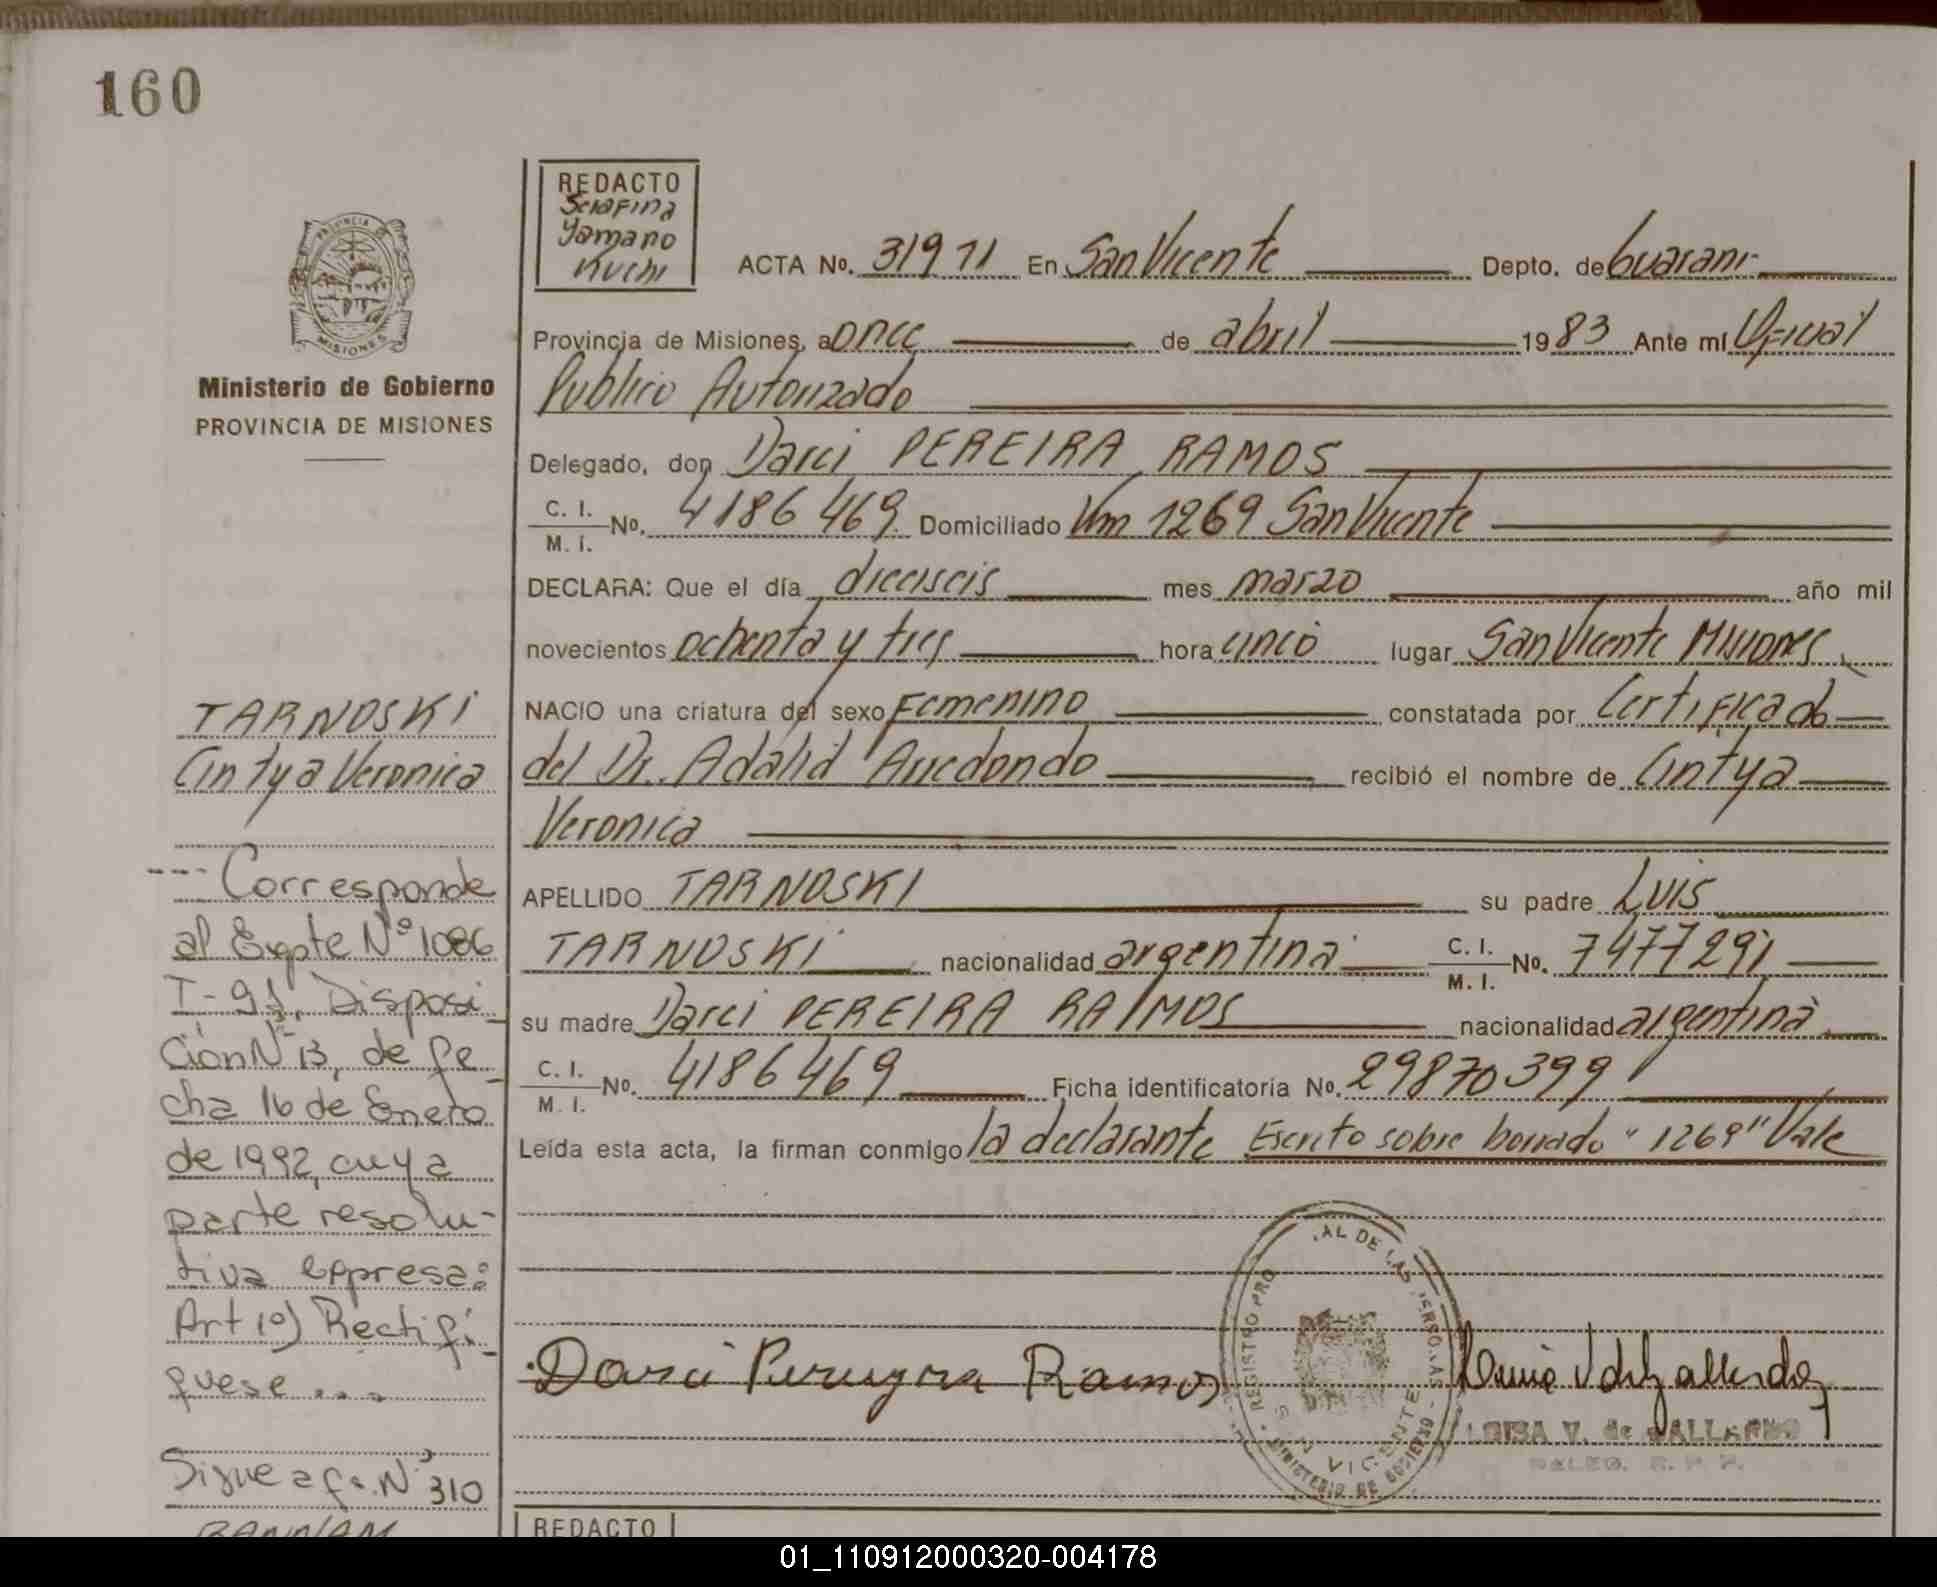 160
PROVINCIA DE
MISIONES
Ministerio de Gobierno
PROVINCIA DE MISIONES
REDACTO
Serafina
Yamano
Kuchi
ACTA No. 31971 En San Vicente Depto. de Guarani
Provincia de Misiones, a once de abril 1983 Ante mí Oficial
Publico Autorizado
Delegado, don Darci PEREIRA RAMOS
C. I.
M. I. No. 4186469 Domiciliado Km 1269 San Vicente
DECLARA: Que el día dieciseis mes marzo año mil
novecientos ochenta y tres hora cinco lugar San Vicente Misiones
NACIO una criatura del sexo Femenino constatada por Certificado
del Dr. Adalid Arredondo recibió el nombre de Cintya
Veronica
APELLIDO TARNOSKI su padre Luis
TARNOSKI nacionalidad argentina C. I. M. I. No. 7477291
su madre Darci PEREIRA RAMOS nacionalidad argentina
C. I.
M. I. No. 4186469 Ficha identificatoria No. 29870399
Leída esta acta, la firman conmigo la declarante Escrito sobre borrado "1269" Vale
TARNOSKI
Cintya Veronica
--- Corresponde
al Expte Nº 1086
T-91, Disposi-
ción Nº 13, de fe-
cha 16 de Enero
de 1992, cuya
parte resolu-
tiva expresa:
Art 1º) Rectifi-
quese ...
Sigue a fs. Nº 310
Darci Pereyra Ramos
REGISTRO PRO AL DE LAS PERSONAS
S N VICENTE
MINISTERIO DE GOBIERNO
LUISA V. de GALLARDO
DELEG. R. P. P.
REDACTO
01_110912000320-004178